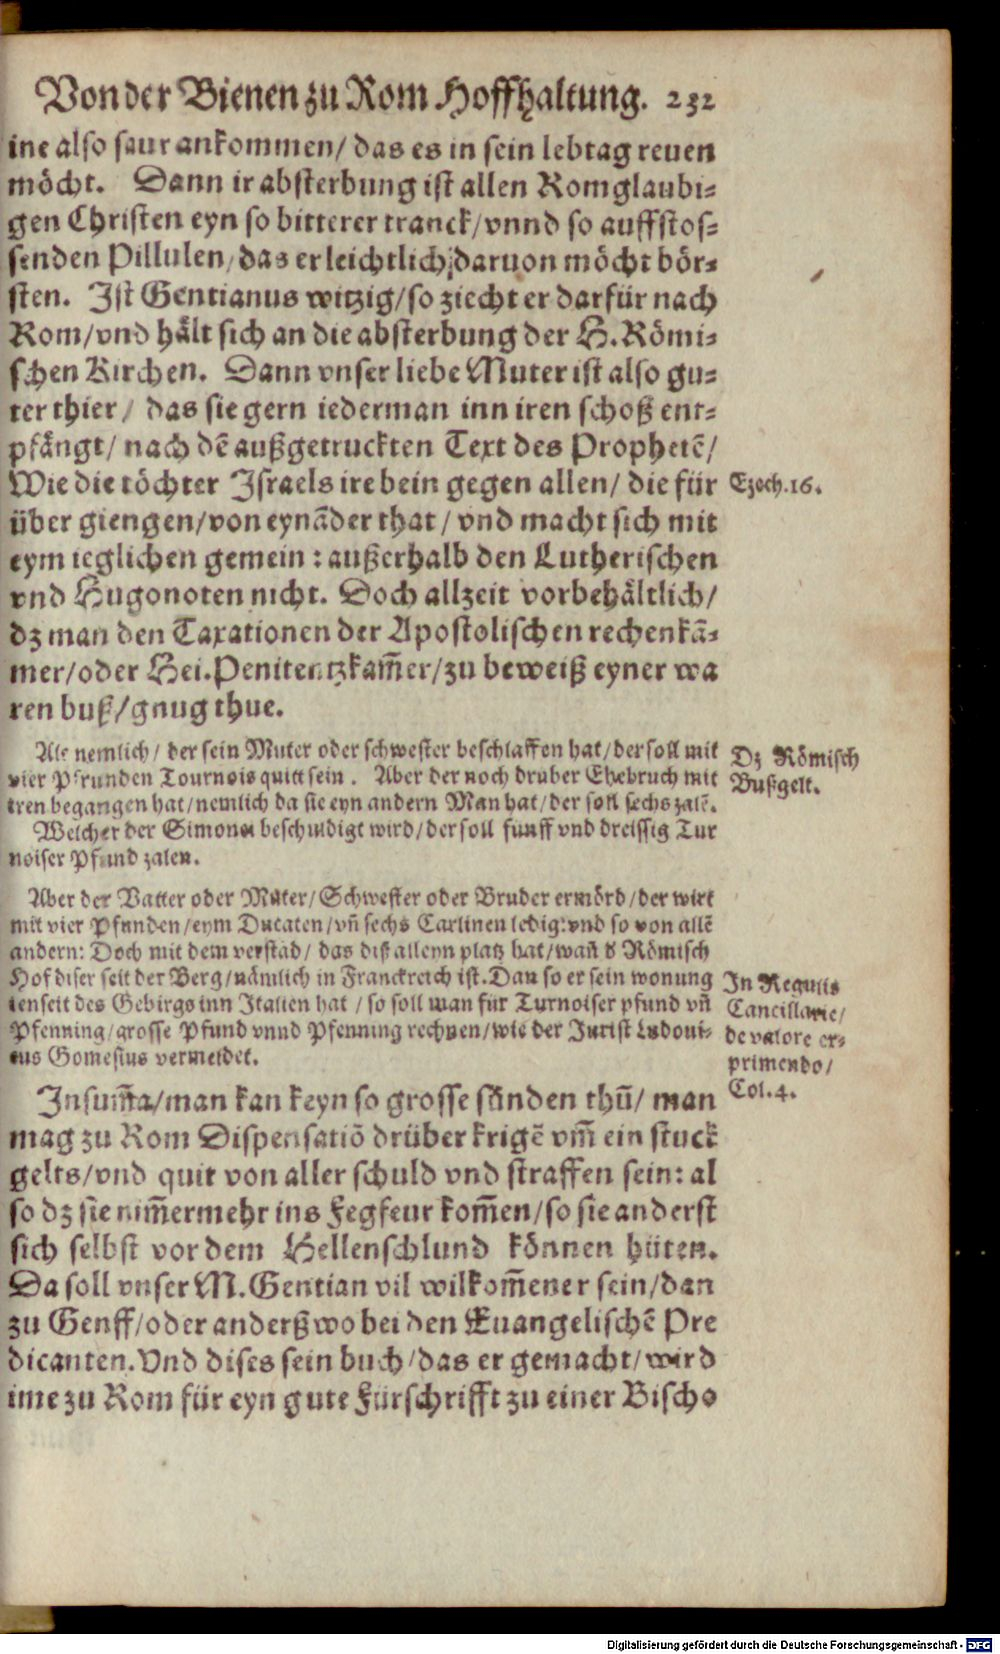 Von der Bienen zu Rom Hoffhaltung. 232
ine also saur ankommen/ das es in sein lebtag reuen
möcht. Dann ir absterbung ist allen Romglaubi=
gen Christen eyn so bitterer tranck/ vnnd so auffstos=
senden Pillulen/ das er leichtlich daruon möcht bör=
sten. Ist Gentianus witzig/ so ziecht er darfür nach
Rom/ vnd hält sich an die absterbung der H. Römi=
schen Kirchen. Dann vnser liebe Muter ist also gu=
ter thier/ das sie gern iederman inn iren schoß ent=
pfängt/ nach dē außgetruckten Text des Prophetē/
Wie die töchter Israels ire bein gegen allen/ die für
über giengen/ von eynāder that/ vnd macht sich mit
eym ieglichen gemein: außerhalb den Lutherischen
vnd Hugonoten nicht. Doch allzeit vorbehältlich/
dz man den Taxationen der Apostolischen rechenkā=
mer/ oder Hei. Penitentzkam̄er/ zu beweiß eyner wa
ren buß/ gnug thue.
Ezech. 16.
Als nemlich/ der sein Muter oder schwester beschlaffen hat/ der soll mit
vier Pfunden Tournois quitt sein. Aber der noch drüber Ehebruch mit
iren begangen hat/ nemlich da sie eyn andern Man hat/ der soll sechs zalē.
Welcher der Simonei beschuldigt wird/ der soll fünff vnd dreissig Tur
noiser Pfund zalen.
Dz Römisch
Bußgelt.
Aber der Vatter oder Muter/ Schwester oder Bruder ermörd/ der wirt
mit vier Pfunden/ eym Ducaten/ vn̄ sechs Carlinen ledig: vnd so von allē
andern: Doch mit dem verstād/ das diß alleyn platz hat/ wan̄ d Römisch
Hof diser seit der Berg/ nämlich in Franckreich ist. Dan so er sein wonung
ienseit des Gebirgs inn Italien hat/ so soll man für Turnoiser pfund vn̄
Pfenning/ grosse Pfund vnnd Pfenning rechnen/ wie der Jurist Ludoui=
cus Gomesius vermeldet.
In Regulis
Cancillarie/
de valore ex=
primendo/
Col. 4.
In sum̄a/ man kan keyn so grosse sünden thū/ man
mag zu Rom Dispensatiō drüber krigē vm̄ ein stuck
gelts/ vnd quit von aller schuld vnd straffen sein: al
so dz sie nim̄ermehr ins Fegfeur kom̄en/ so sie anderst
sich selbst vor dem Hellenschlund können hüten.
Da soll vnser M. Gentian vil wilkom̄ener sein/ dan
zu Genff/ oder anderßwo bei den Euangelischē Pre
dicanten. Vnd dises sein buch/ das er gemacht/ wird
ime zu Rom für eyn gute Fürschrifft zu einer Bischo
Digitalisierung gefördert durch die Deutsche Forschungsgemeinschaft - DFG